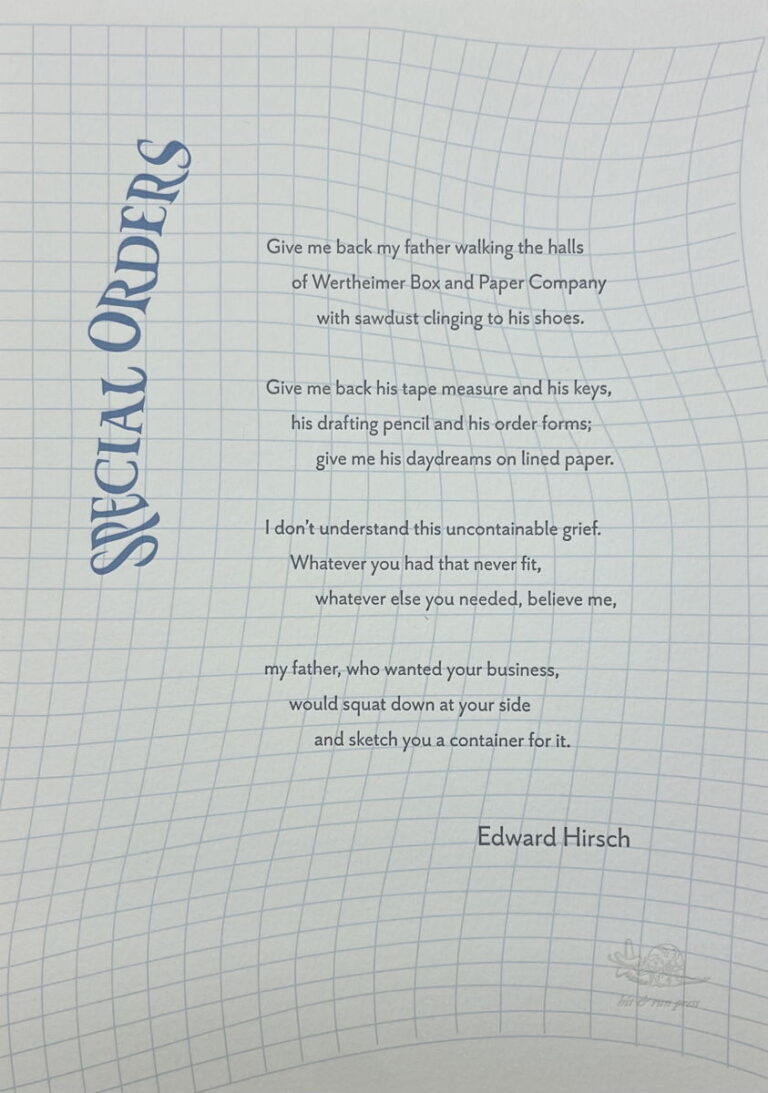 SPECIAL ORDERS
Give me back my father walking the halls
of Wertheimer Box and Paper Company
with sawdust clinging to his shoes.
Give me back his tape measure and his keys,
his drafting pencil and his order forms;
give me his daydreams on lined paper.
I don’t understand this uncontainable grief.
Whatever you had that never fit,
whatever else you needed, believe me,
my father, who wanted your business,
would squat down at your side
and sketch you a container for it.
Edward Hirsch
hit & run press